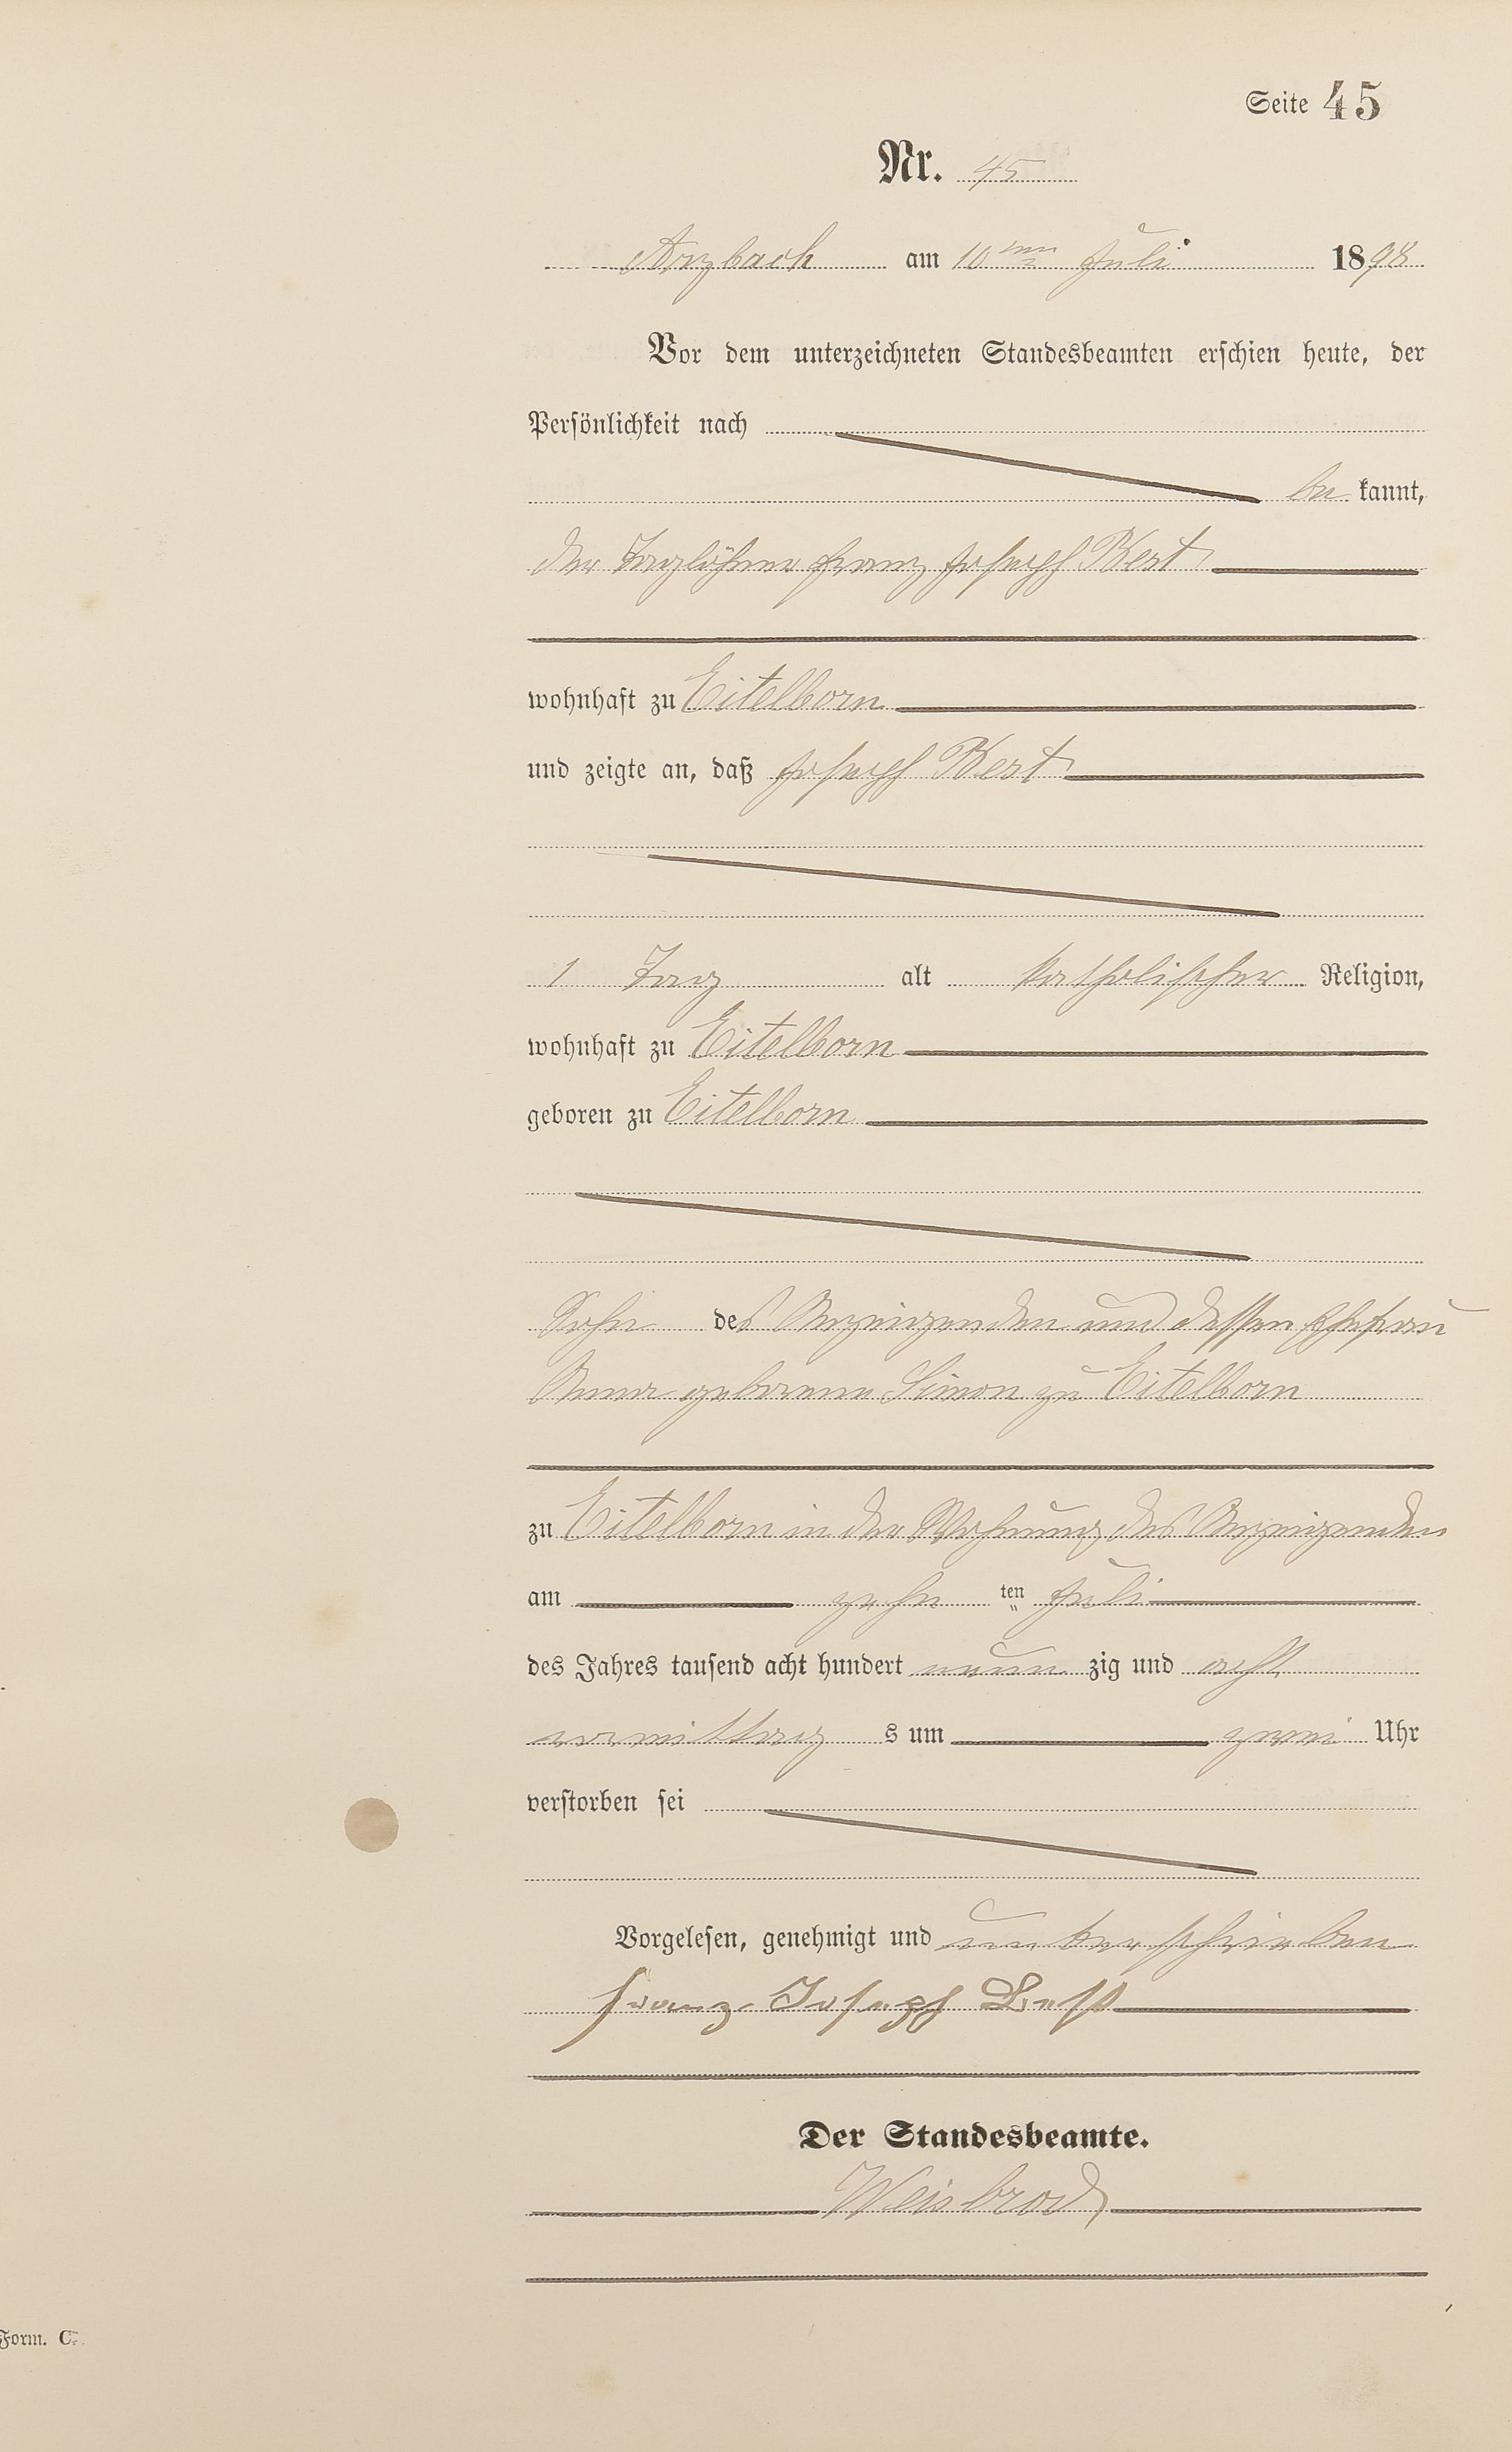 Seite 45
Nr. 45
Arzbach am 10ten Juli 1898
Vor dem unterzeichneten Standesbeamten erschien heute, der
Persönlichkeit nach
be kannt,
der Taglöhner Franz Joseph Best
wohnhaft zu Eitelborn
und zeigte an, daß Joseph Best
1 Tag alt katholischer Religion,
wohnhaft zu Eitelborn
geboren zu Eitelborn
Sohn des Anzeigenden und dessen Ehefrau
Anna geborene Simon zu Eitelborn
zu Eitelborn in der Wohnung des Anzeigenden
am zehn ten Juli
des Jahres tausend acht hundert neun zig und acht
vormittag s um zwei Uhr
verstorben sei
Vorgelesen, genehmigt und unterschrieben
Franz Joseph Best
Der Standesbeamte.
Weisbrod
Form. C.